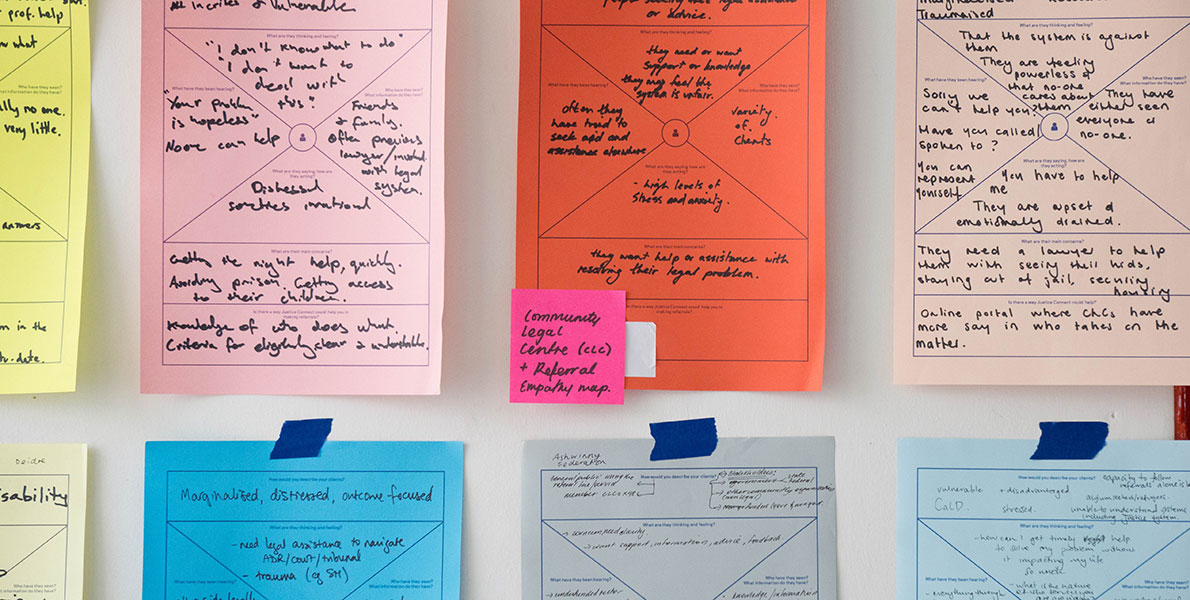 prof. help
what
ally no one.
very little.
answers
in the
to-date.
in crises & vulnerable
What are they thinking and feeling?
"I don't know what to do"
"I don't want to
deal with
this"
What have they been hearing?
Who have they seen?
What information do they have?
"Your problem
is hopeless"
No one can help
Friends
& family.
Often previous
lawyer/
with legal
system.
What are they saying, how are
they acting?
Distressed
sometimes irrational
What are their main concerns?
Getting the right help, quickly.
Avoiding prison. Getting access
to their children.
Is there a way Justice Connect could help you in
making referrals?
Knowledge of who does what.
Criteria for eligibility clear &
or advice.
What are they thinking and feeling?
they need or want
support or knowledge
they may feel the
system is unfair.
What have they been hearing?
Who have they seen?
What information do they have?
often they
have tried to
seek aid and
assistance elsewhere
variety
of
clients
What are they saying, how are
they acting?
- high levels of
stress and anxiety.
What are their main concerns?
they want help or assistance with
resolving their legal problem.
could help you in
Community
Legal
Centre (CLC)
+ Referral
Empathy map.
Traumatised
What are they thinking and feeling?
That the system is against
them
They are feeling
powerless &
that no-one
cares about
them
What have they been hearing?
Who have they seen?
What information do they have?
Sorry we
can't help you?
Have you called/
spoken to?
You can
represent
yourself
They have
either seen
everyone or
no-one.
What are they saying, how are
they acting?
You have to help
me
They are upset &
emotionally drained.
What are their main concerns?
They need a lawyer to help
them with seeing their kids,
staying out of jail, securing
housing
Is there a way Justice Connect could help?
Online portal where CLCs have
more say in who takes on the
matter.
Deidre
isability
How would you describe your clients?
Marginalised, distressed, outcome focused
What are they thinking and feeling?
- need legal assistance to navigate
ADR/court/tribunal
- trauma (eg SH)
What have they been hearing?
Who have they seen?
What information do they have?
Federation
How would you describe your clients?
general public using the
member CLCs
Stakeholders:
state
federal
What are they thinking and feeling?
want support, information, advice, feedback
What have they been hearing?
Who have they seen?
What information do they have?
knowledge/information
How would you describe your clients?
vulnerable
+ disadvantaged
CaLD.
stressed.
capacity to follow
referrals alone is
unable to understand systems
including justice system.
What are they thinking and feeling?
- how can I get timely help
to solve my problem without
it impacting my life
so much
- what is the nature
What have they been hearing?
Who have they seen?
What information do they have?